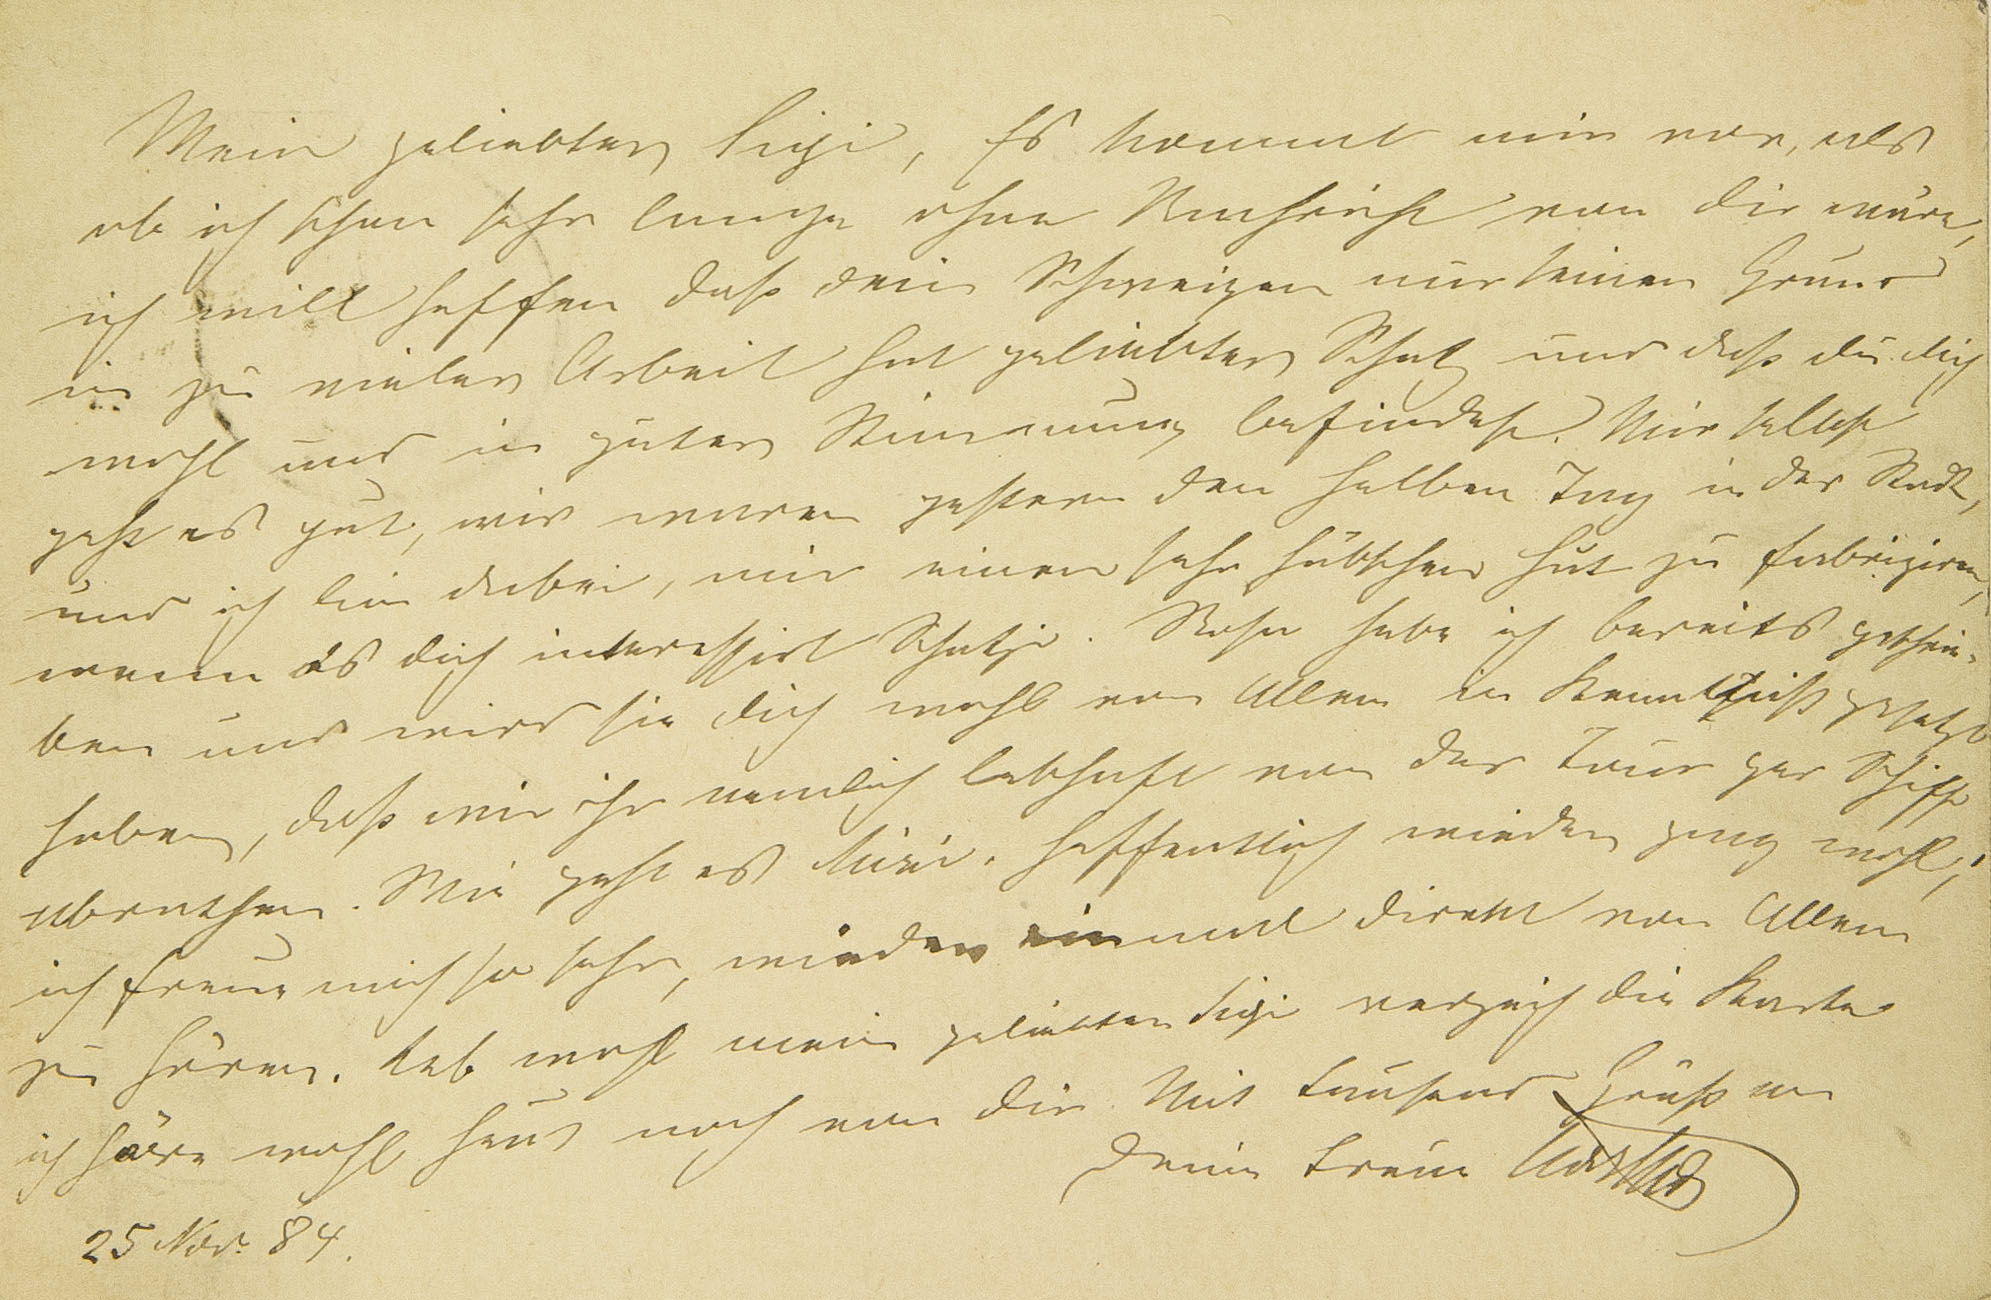 Mein geliebter Sigi, Es kommt mir vor, als
ob ich schon sehr lange ohne Nachricht von dir wäre,
ich will hoffen daß dein Schweigen nur seinen Grund
in zu vieler Arbeit hat geliebter Schatz und daß du dich
wohl und in guter Stimmung befindest. Mir selbst
geht es gut, wir waren gestern den halben Tag in der Stadt,
und ich bin dabei, mir einen sehr hübschen Hut zu fabriziren,
wenn es dich interessirt Schatzi. Rosa habe ich bereits geschrie-
ben und wird sie dich wohl von Allem in Kenntniß gesetzt
haben, daß wir ihr nemlich lebhaft von der Tour per Schiff
abrathen. Wie geht es Mini. hoffentlich wieder ganz wohl,
ich freue mich so sehr, wieder einmal direkt von Allem
zu hören. Leb wohl mein geliebter Sigi verzeih die Karte
ich höre wohl heut noch von dir. Mit tausend Grüßen
Deine treue Martha
25 Nov. 84.